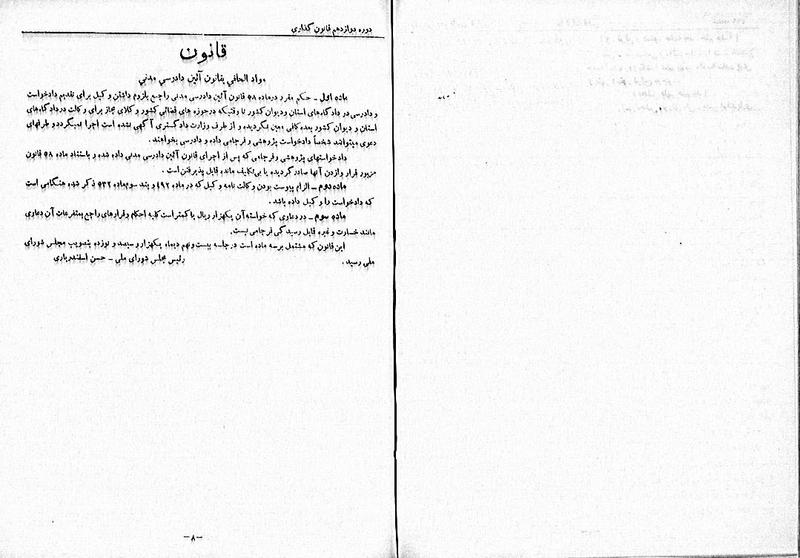 دوره دوازدهم قانون گذاری
قانون
مواد الحاقی بقانون آئین دادرسی مدنی
ماده اول ـ حکم مقرر در ماده ۵۸ قانون آئین دادرسی مدنی راجع بلزوم داشتن وکیل برای تقدیم دادخواست
و دادرسی در دادگاههای استان و دیوان کشور تا وقتیکه در حوزه های قضائی کشور وکلای مجاز برای وکالت در دادگاههای
استان و دیوان کشور بعده کافی معین نگردیده و از طرف وزارت دادگستری آگهی نشده است اجرا نمیگردد و طرفهای
دعوی میتوانند شخصاً دادخواست پژوهشی و فرجامی داده و دادرسی بخواهند.
دادخواستهای پژوهشی و فرجامی که پس از اجرای قانون آئین دادرسی مدنی داده شده و باستناد ماده ۵۸ قانون
مزبور قرار رد آنها صادر گردیده یا بی تکلیف مانده قابل پذیرفتن است.
ماده دوم ـ الزام پیوست بودن وکالت نامه وکیل که در ماده ۴۹۲ و بند سوم ماده ۵۳۲ ذکر شده هنگامی است
که دادخواست را وکیل داده باشد.
ماده سوم ـ در دعاوی که خواسته آن یکهزار ریال یا کمتر است کلیه احکام و قرارهای راجع بمتفرعات آن دعاوی
مانند خسارت و غیره قابل رسیدگی فرجامی نیست.
این قانون که مشتمل بر سه ماده است در جلسه بیست و نهم دیماه یکهزار و سیصد و نوزده بتصویب مجلس شورای
ملی رسید.
رئیس مجلس شورای ملی ـ حسن اسفندیاری
ـ۸ـ